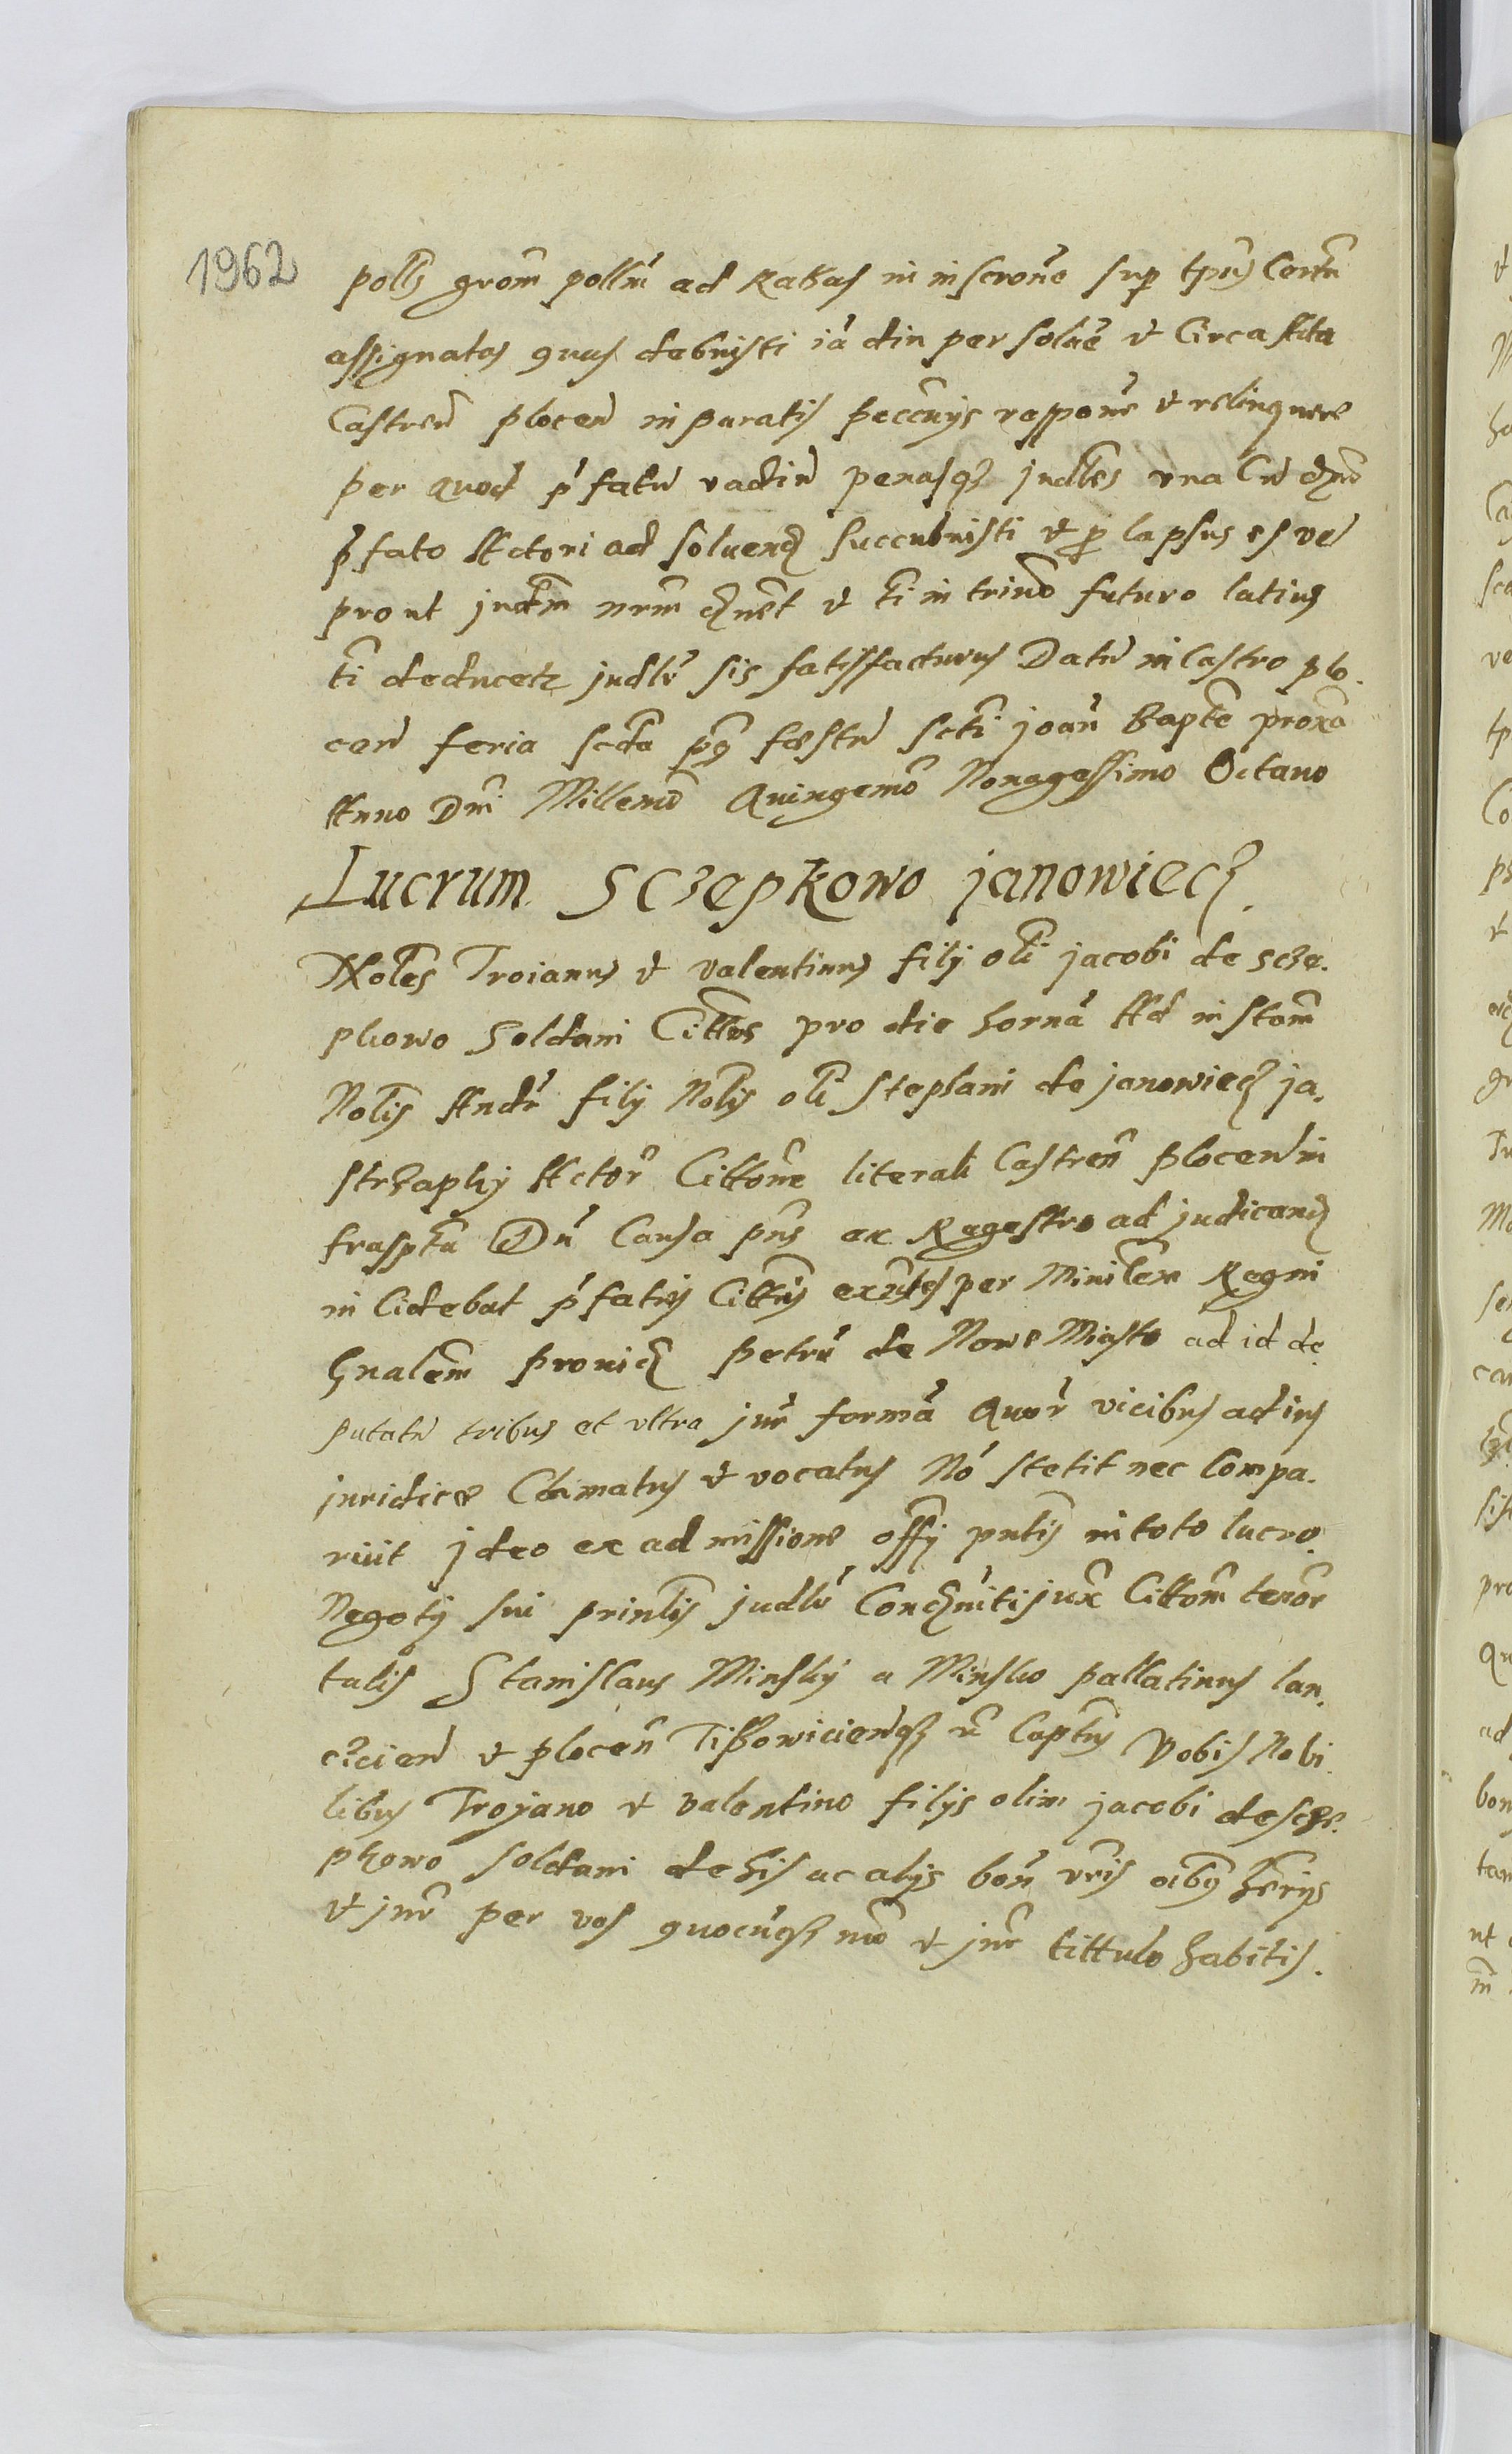 1962
polls grom pollm ad Ratas in inscrone sup tpus certu
assignatas quas debuisti iā diu persolue et circa Acta
Castren plocen in paratis peccunys reppone et relinquere
per quod pfatu vadiu penasq judles una cu dno
pfato Actori ad soluend succubuisti et plapsus es ve
prout judm nrm et ti in trino futuro latius
ti deducetr judlr sis satisfacturus Datu in Castro plo.
cen feria scda pq festu scti joan Bapte proxa
Anno Dni Millemo Quingemo Nonagessimo Octauo
Lucrum Sczepkowo janowiecz.
Noles Troianus et valentinus filij oli jacobi de scze.
pkowo Soldani Citti pro die horna Ad instam
Nolis Andr filij Nolis oli stephani de janowiecz ja.
strzapky Actor Cittone literali Castren plocen in
fraspta Du Causa pns ex Regestro ad judicand
incidebat pfatus per Ministem Regni
Gnalem prouid petru de Nowe Miasto ad id de
putatu tribus et ultra jur forma quor vicibus adius
juridice Clamatus et vocatus No stetit nec Compa.
ruit jdeo ex admissione offy pntis in toto lucro
Negoty sui prinlis judlr jux Cittom tenor
talis Stanislaus Minsky a Minsko pallatinus lan.
czicien et plocen Captus Vobis Nobi
libus Trojano et valentino filijs olim jacobi de scze.
pkowo soldani de his ac alijs bon vris oibq
et jur per vos quocuq mo et jur tittulo habitis.